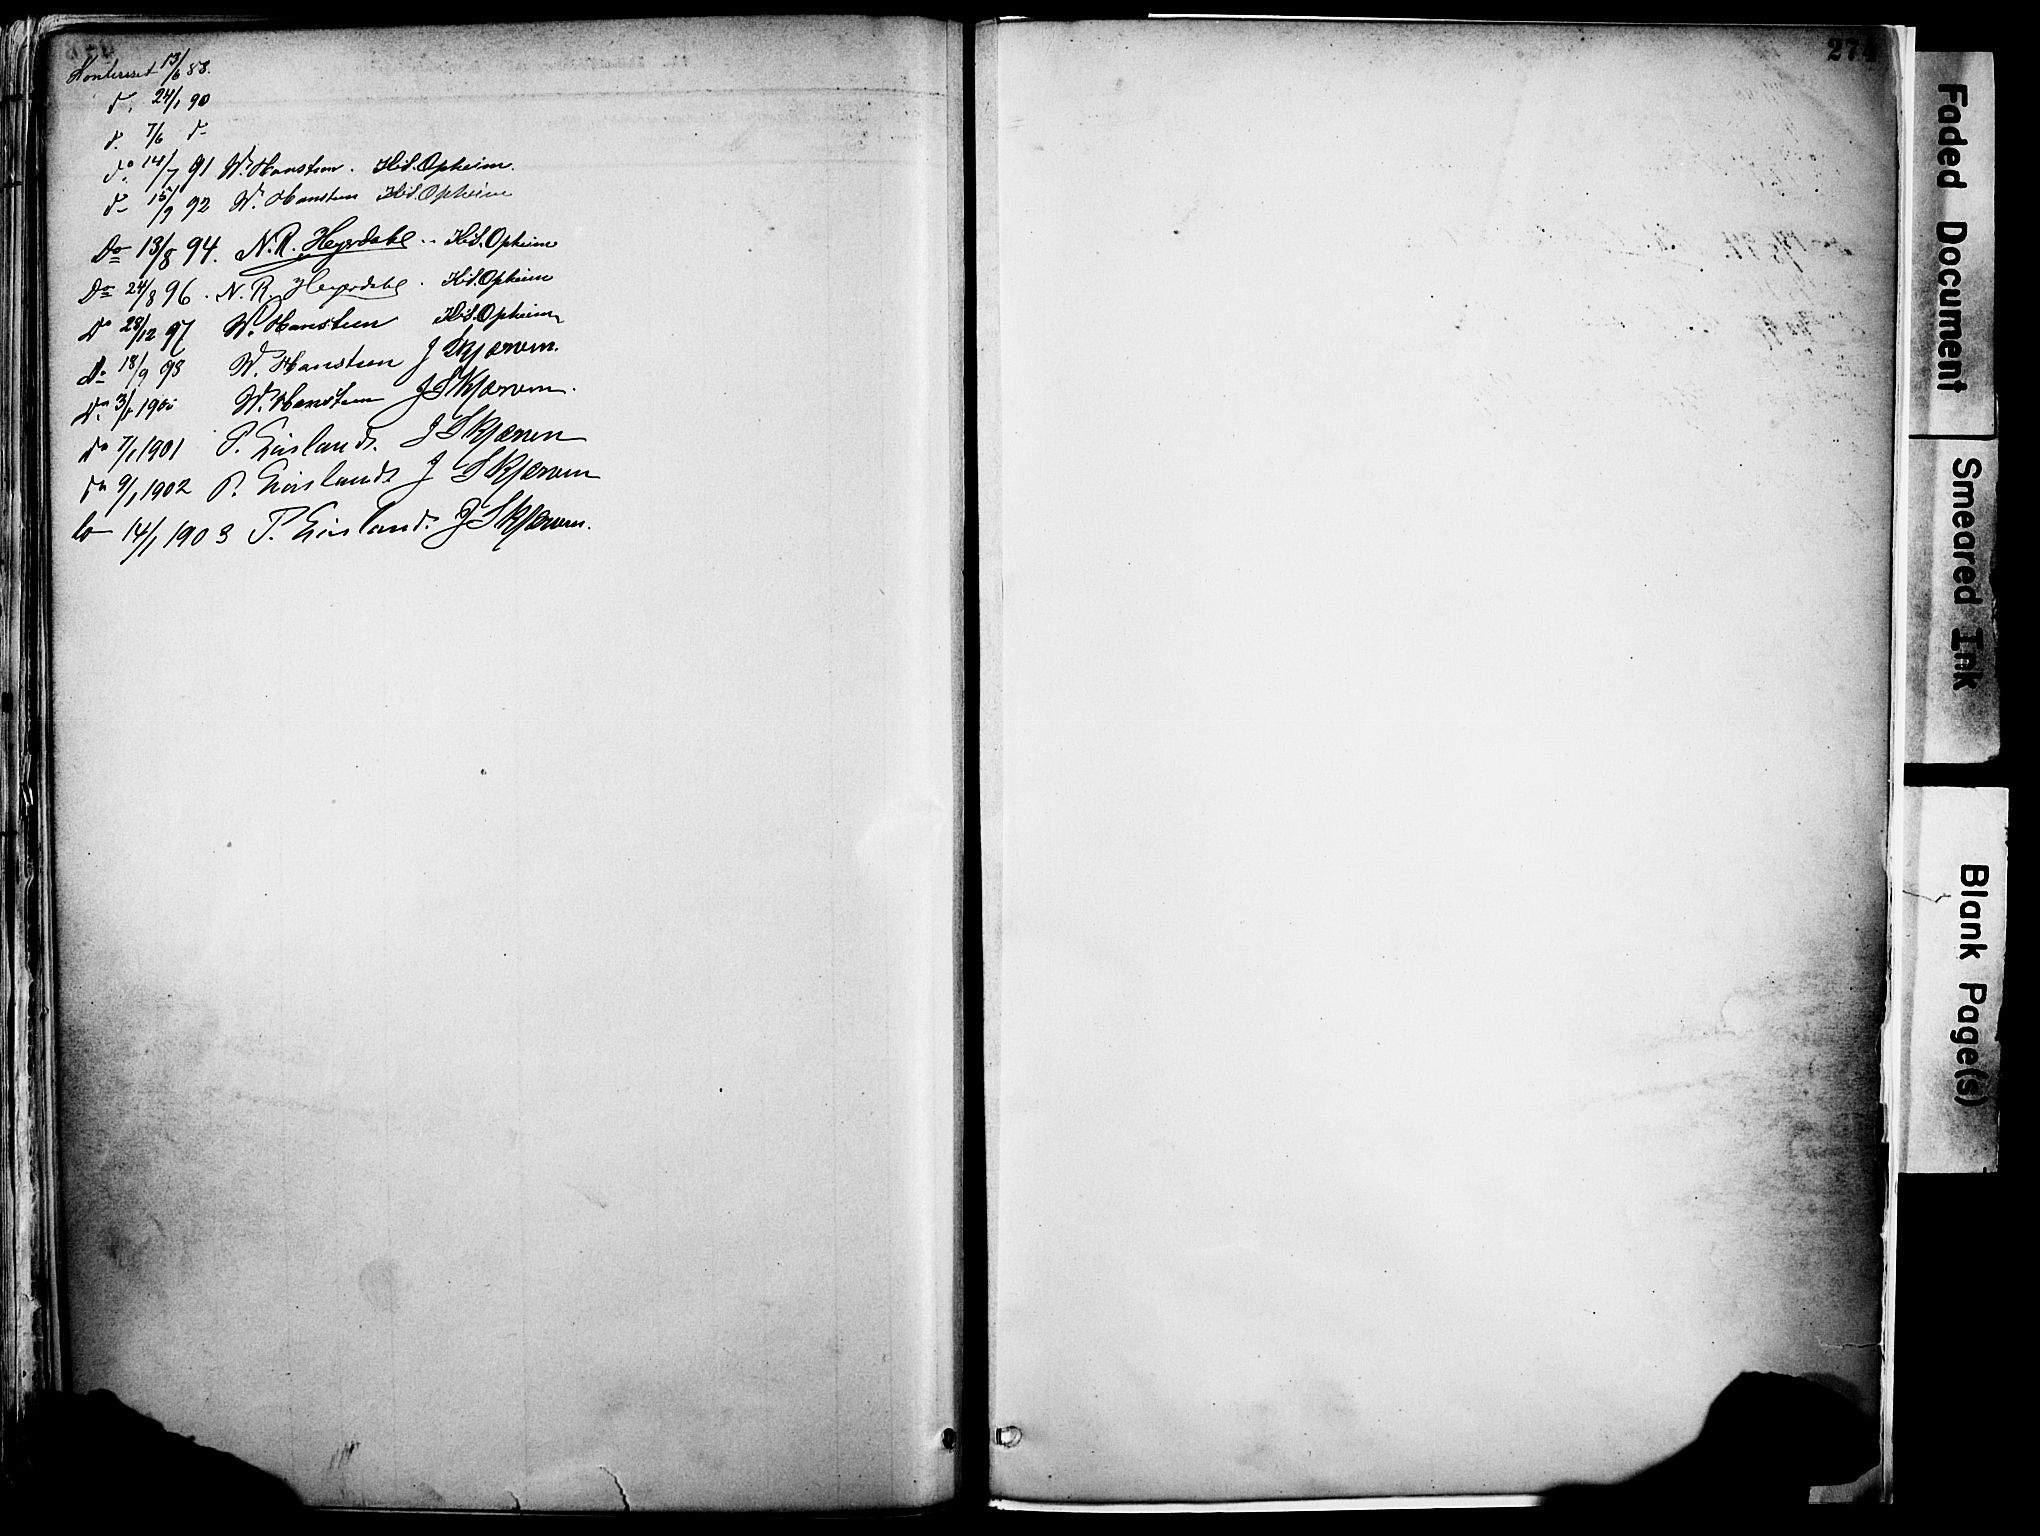 Konfereret 13/6 88.
d. 24/1 90
d. 7/6 d-
do 14/7 91 W. Hansteen. Kr.S. Opheim.
d- 15/9 92 W. Hansteen Kr.S. Opheim
Do 13/8 94. N. R. Heyerdahl. Kr.S. Opheim
Do 24/8 96. N. R. Heyerdahl. Kr.S. Opheim
do 28/12 97 W. Hansteen Kr.S. Opheim
do 18/9 98 W. Hansteen J Skjerven.
do 3/1 1900 W. Hansteen J Skjerven.
do 7/1 1901 P. Eidslands. J Skjerven
do 9/1 1902 P. Eidslands J Skjerven
do 14/1 1903 P. Eidsland. J Skjerven.
274
Faded Document
Smeared Ink
Blank Page(s)